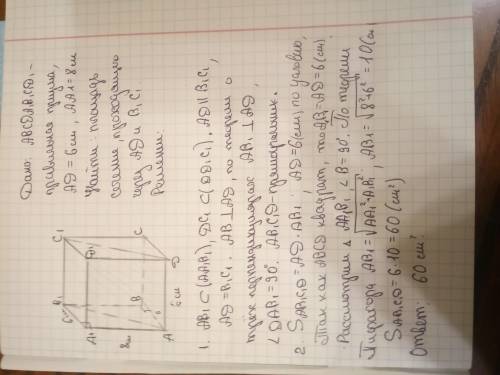 Дано: ABCDA₁B₁C₁D₁ -
правильная призма,
AD = 6 см, AA₁ = 8 см
Найти: площадь
сечения, проходящего
через AD и B₁C₁
Решение:
B₁
C₁
6
A₁
D₁
8 см
B
C
6
A
6 см
D
1. AB₁ ⊂ (AA₁B₁), DC₁ ⊂ (DD₁C₁). AD ∥ B₁C₁,
AD = B₁C₁. AB ⊥ AD, по теореме о
трех перпендикулярах AB₁ ⊥ AD,
∠DAB₁ = 90°. AB₁C₁D - прямоугольник.
2. SAB₁C₁D = AD · AB₁. AD = 6 (см) по условию.
Так как ABCD квадрат, то A₁B₁ = AD = 6 (см)
Рассмотрим △ AA₁B₁, ∠B = 90°. По теореме
Пифагора AB₁ = √AA₁² + A₁B₁², AB₁ = √8² + 6² = 10 (см)
SAB₁C₁D = 6 · 10 = 60 (см²)
Ответ: 60 см²